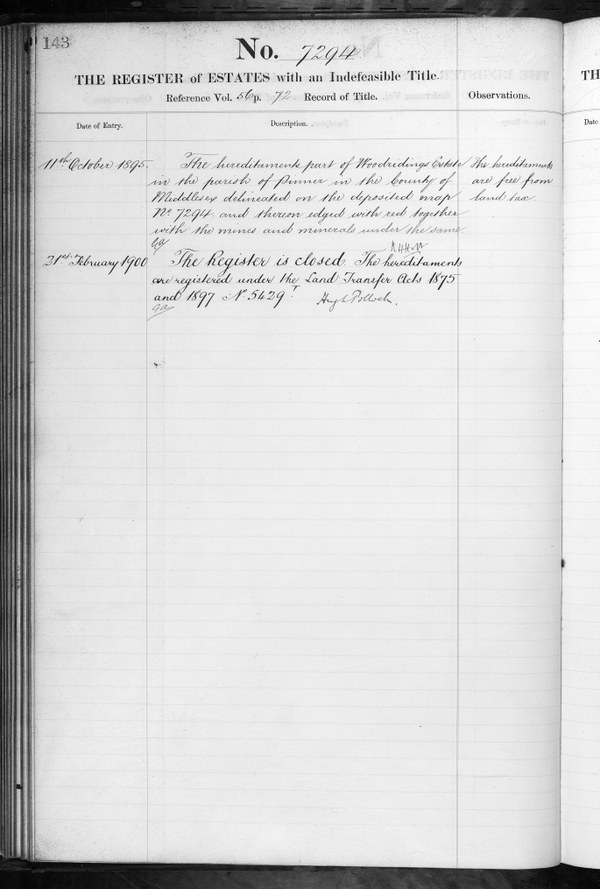 143
No. 7294
THE REGISTER of ESTATES with an Indefeasible Title.
Reference Vol. 56 p. 72 Record of Title.
Observations.
Date of Entry.
Description.
11th October 1895.
The hereditaments part of Woodredings Estate
in the parish of Pinner in the County of
Middlesex delineated on the deposited map
No. 7294 and thereon edged with red together
with the mines and minerals under the same
The hereditaments
are free from
land tax.
31st February 1900
The Register is closed. The hereditaments
are registered under the Land Transfer Acts 1875
and 1897 No 5429
Hugh Pollock.
TH
Date